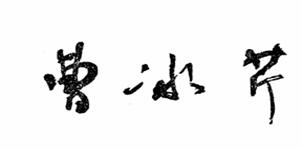 曹冰芹